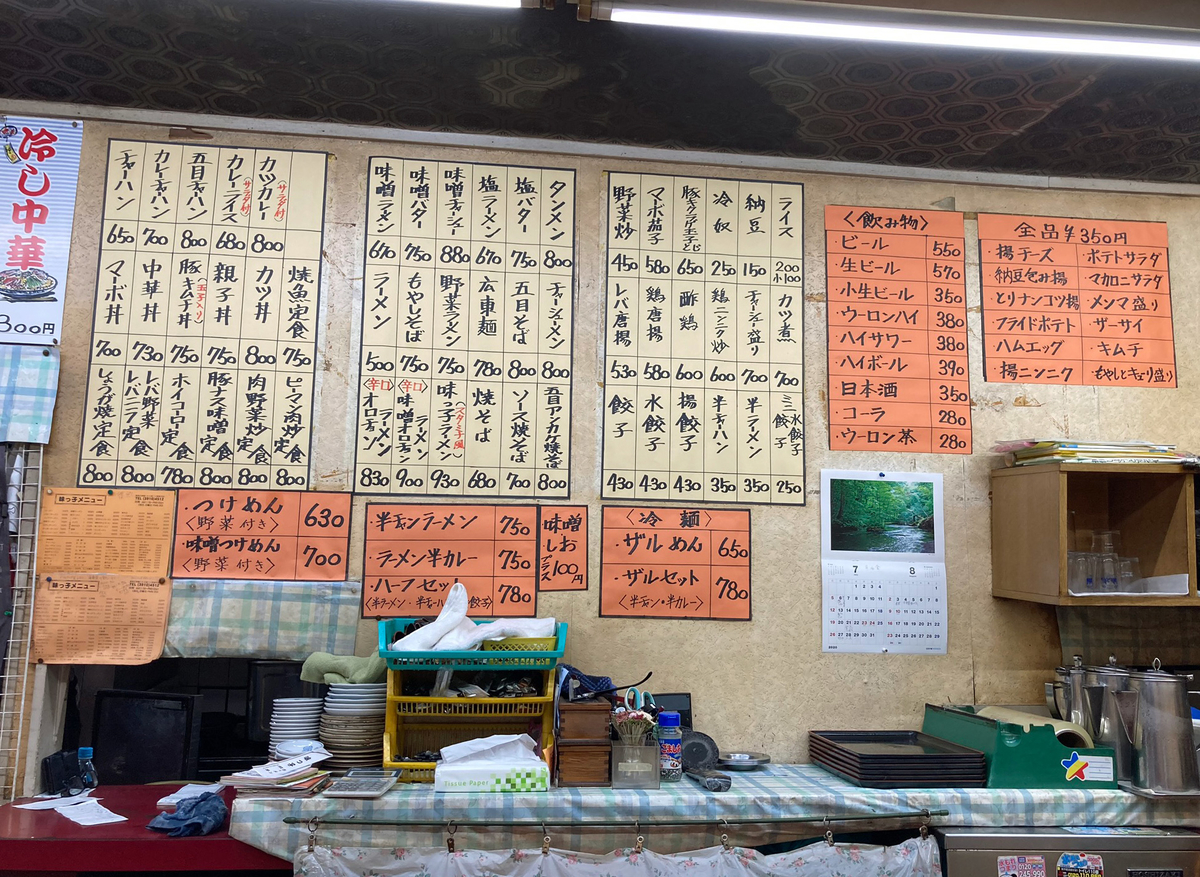 冷し中華
800円
カツカレー(サラダ付) 800
カレーライス(サラダ付) 680
五目チャーハン 800
カレーチャーハン 700
チャーハン 650
焼魚定食 750
カツ丼 800
親子丼 750
豚キムチ丼(玉子入り) 750
中華丼 730
マーボ丼 700
ピーマン肉炒め定食 800
肉野菜炒め定食 800
豚ナス味噌定食 800
ホイコーロー定食 780
レバ野菜レバニラ定食 800
しょうが焼定食 800
タンメン 800
塩バター 750
塩ラーメン 670
味噌チャーシュー 880
味噌バター 750
味噌ラーメン 670
チャーシューメン 800
五目そば 800
広東麺 780
野菜ラーメン 750
もやしそば 750
ラーメン 500
五目アンカケ焼そば 800
ソース焼そば 700
焼そば 680
味っ子ラーメン(スタミナ風) 930
〈辛口〉味噌オロチョンラーメン 900
〈辛口〉オロチョンラーメン 830
ライス 200 小100
納豆 150
冷奴 250
豚キクラゲ玉子とじ 650
マーボ茄子 580
野菜炒 450
カツ煮 700
チャーシュー盛り 700
鶏ニンニク炒 600
酢鶏 600
鶏唐揚 580
レバ唐揚 530
ミニ水餃子餃子 250
半ラーメン 350
半チャーハン 350
揚餃子 430
水餃子 430
餃子 430
〈飲み物〉
・ビール 550
・生ビール 570
・小生ビール 350
・ウーロンハイ 380
・ハイサワー 380
・ハイボール 390
・日本酒 350
・コーラ 280
・ウーロン茶 280
全品¥350円
・揚チーズ ・ポテトサラダ
・納豆包み揚 ・マカロニサラダ
・とりナンコツ揚 ・メンマ盛り
・フライドポテト ・ザーサイ
・ハムエッグ ・キムチ
・揚ニンニク ・もやしとキュリ盛り
味っ子メニュー
味っ子メニュー
・つけめん〈野菜付き〉 630
・味噌つけめん〈野菜付き〉 700
・半チャンラーメン 750
・ラーメン半カレー 750
・ハーフセット 780
味噌しおプラス100円
〈冷麺〉
・ザルめん 650
・ザルセット〈半チャン・半カレー〉 780
7 8
Tissue Paper